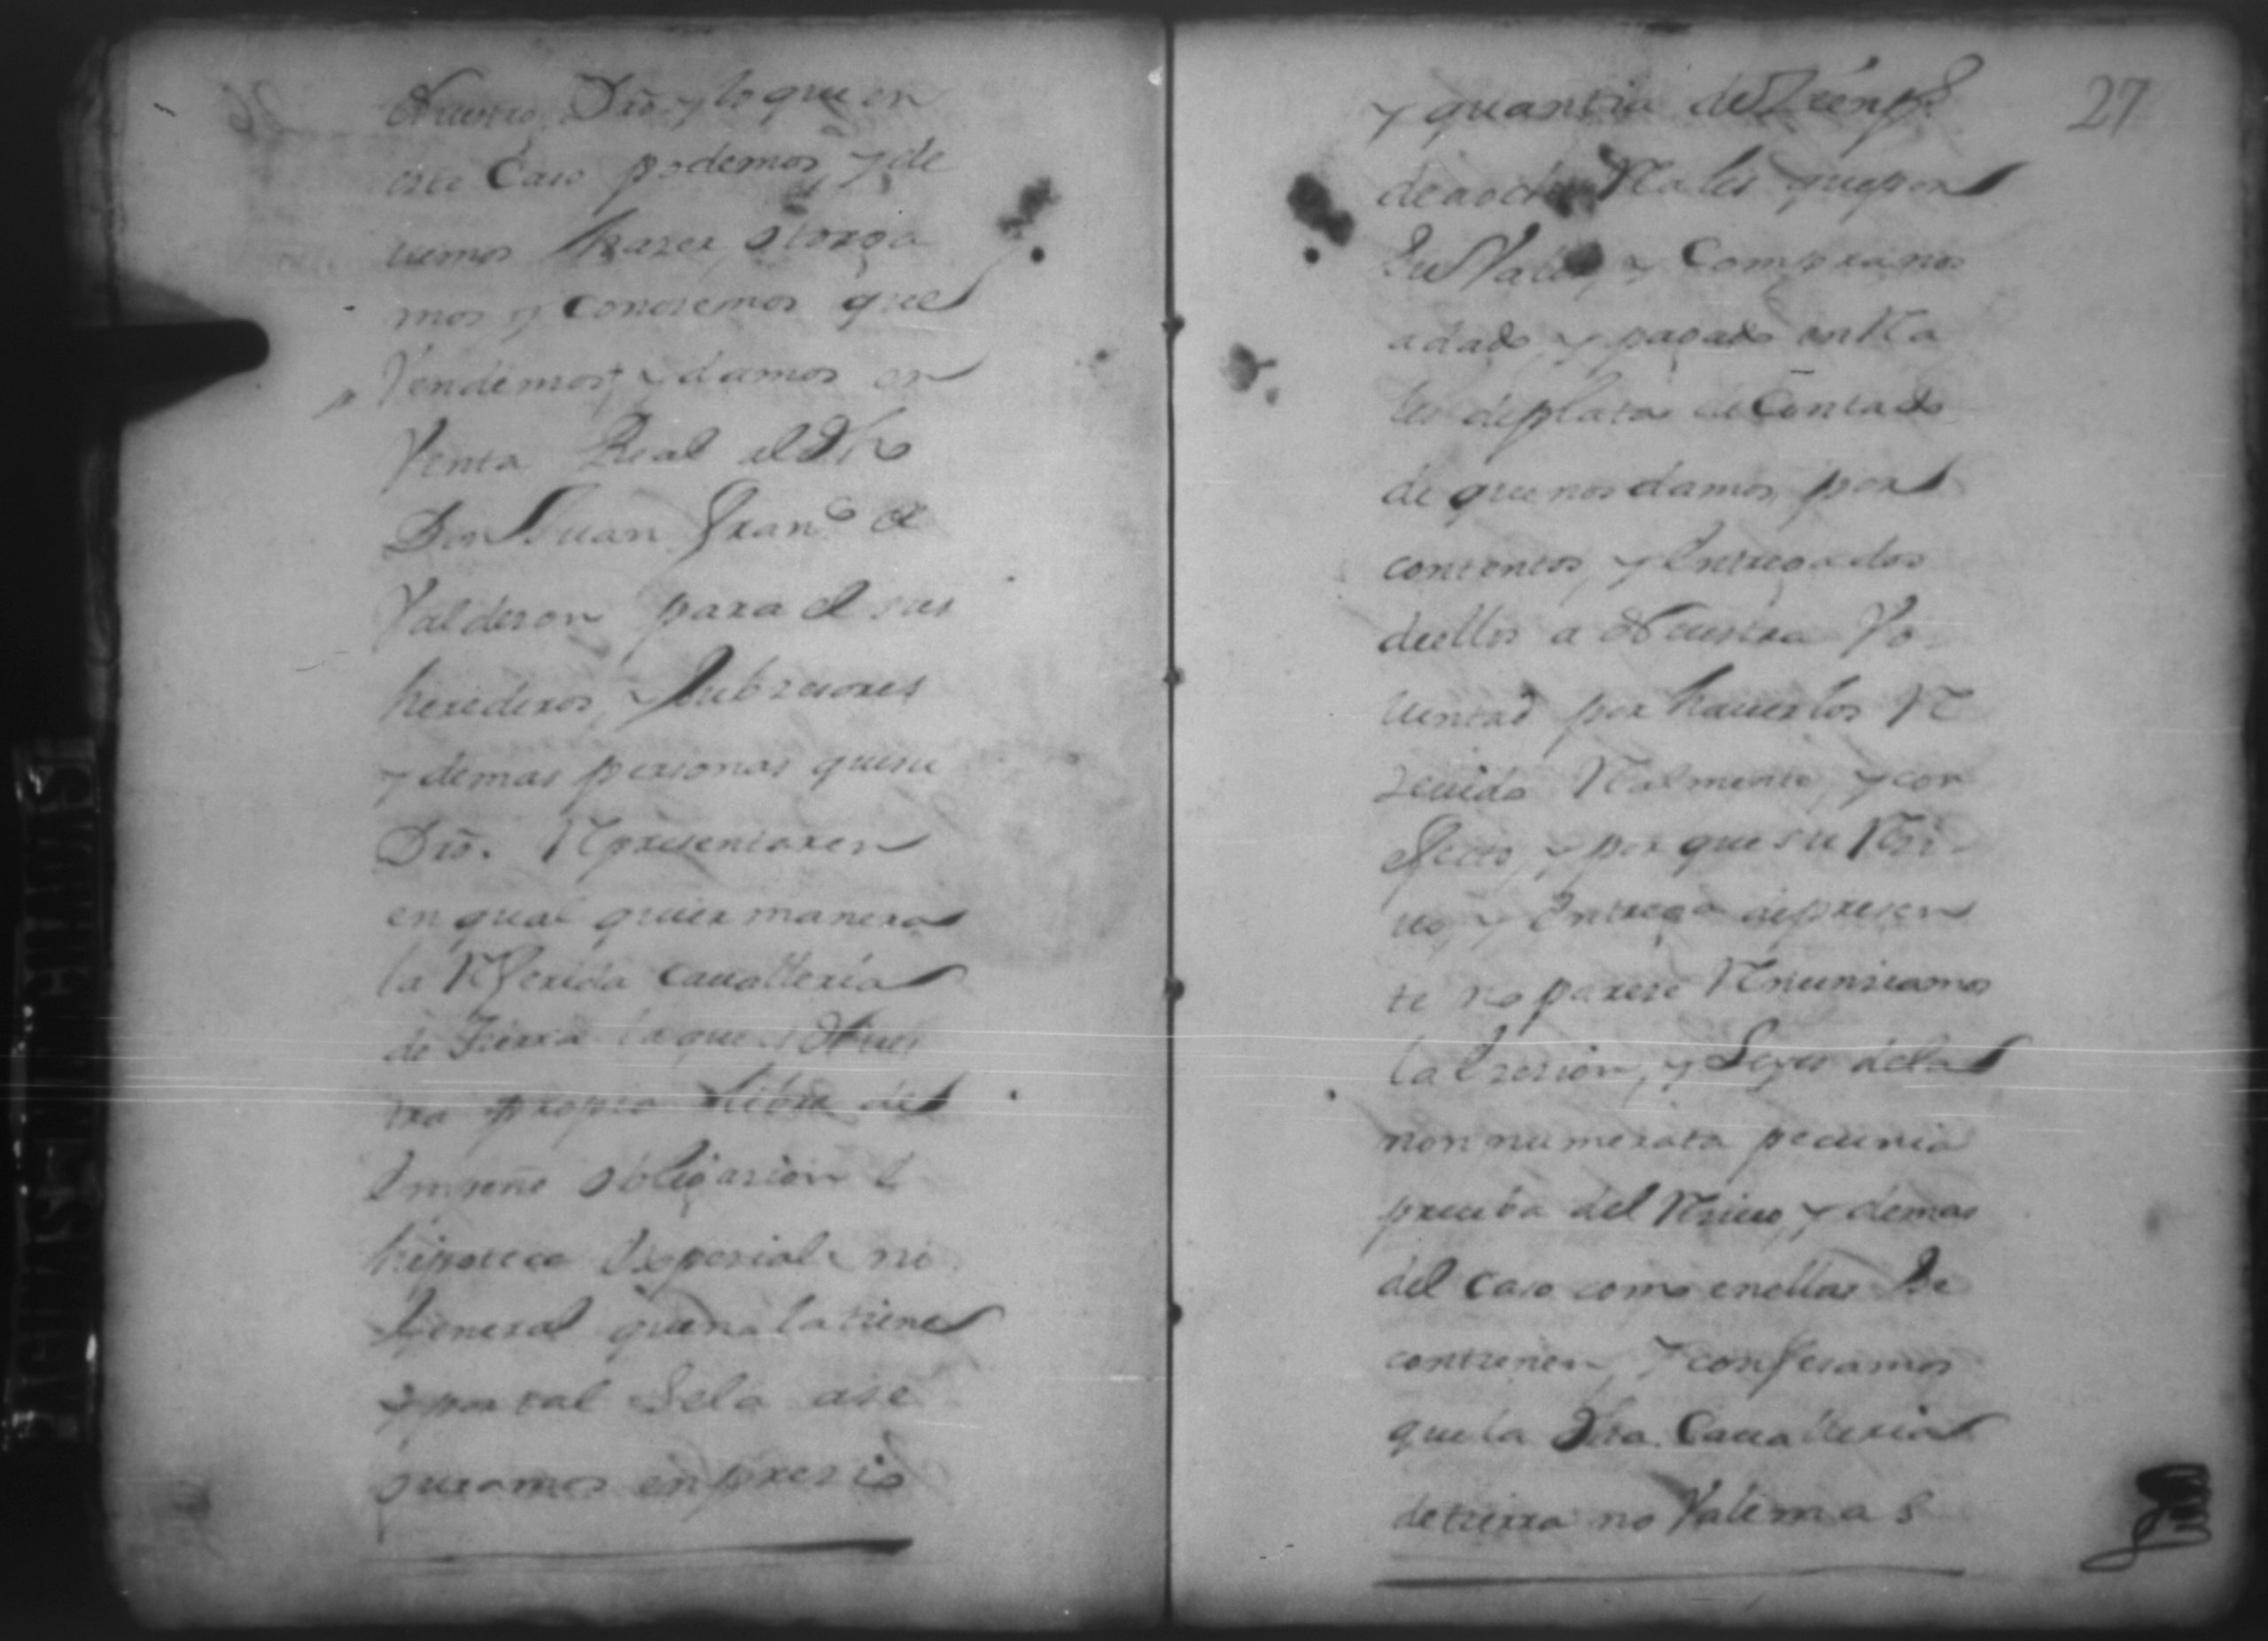 Nuestro Dro. y lo que en
este Caso podemos y de
uemos hazer otorga
mos y Conosemos que
Vendemos y damos en
Venta Real al dho
Don Juan Fran.co de
Valderon para el sus
herederos, y Subsesores
y demas personas que su
Dro. Representaren
en qual quier manera
la Referida Caualleria
de Tierra la que es Nues
tra propia Libre de
Empeño obligasion e
hipoteca Espesial ni
General que no la tiene
y por tal se la ase
guramos en presio
27
y quantia de Zien p.s
de a ocho Rales que por
Su Valor y Compra nos
a dado y pagado en Ra
les de plata de Contado
de que nos damos por
contentos y Entregados
de ellos a Nuestra Vo
luntad por hauerlos Re
seuido Realmente y con
efecto y por que su Resi
uo y Entrega de presen
te no parese Renunsiamos
la Exesion, y Leyes de la
non numerata pecunia
prueba del Resiuo y demas
del caso como en ellas Se
contienen y confesamos
que la dha. Caualleria
de tierra no Vale mas